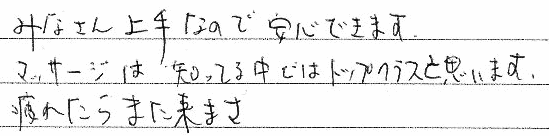 みなさん上手なので安心できます.
マッサージは知ってる中ではトップクラスと思います.
疲れたらまた来ます